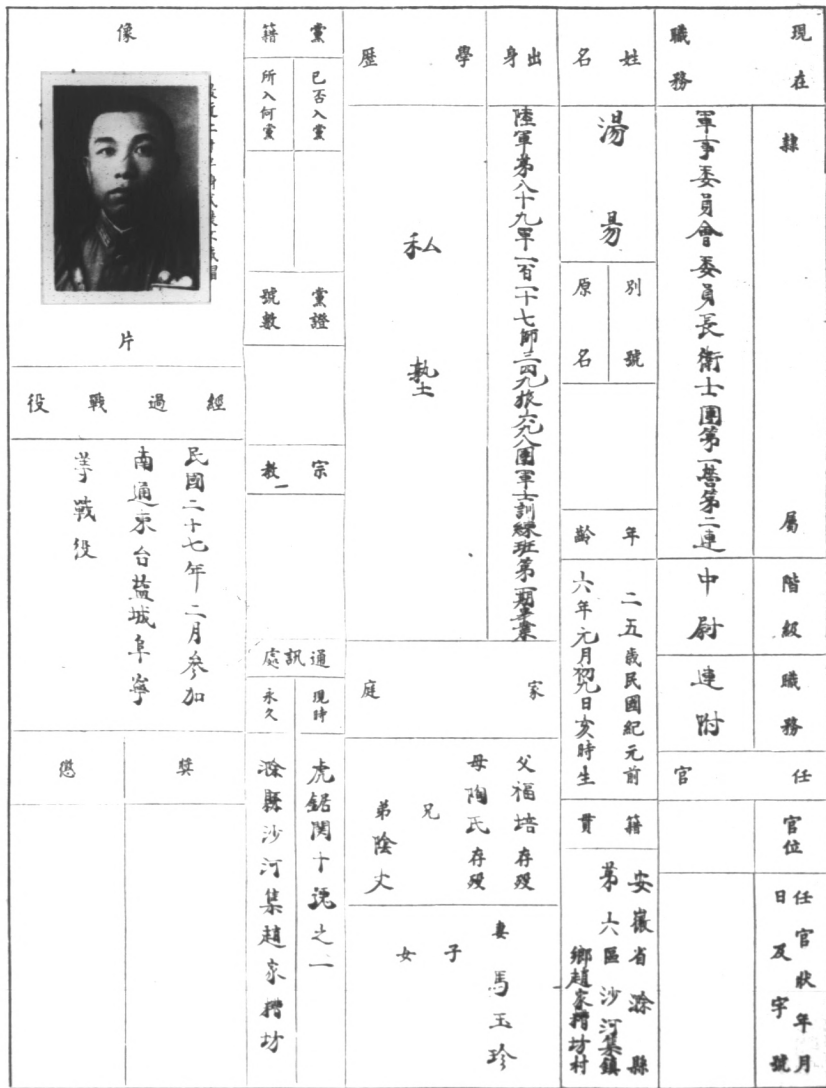 現在職務
隸屬
軍事委員會委員長衛士團第一營第二連
階級
中尉
職務
連附
任官
官位
任官狀年月日及字號
姓名
湯昜
別號
原名
年齡
二五歲民國紀元前
六年元月初九日亥時生
籍貫
安徽省滁縣
第六區沙河集鎮
鄉趙家糟坊村
出身
陸軍第八十九軍一百一十七師三四九旅六九八團軍士訓練班第一期畢業
學歷
私塾
家庭
父福培存歿
母陶氏存歿
兄
弟蔭文
妻馬玉珍
子
女
黨籍
已否入黨
所入何黨
黨證號數
宗教
通訊處
現時
虎鋸関十號之二
永久
滁縣沙河集趙家糟坊
像片
經過戰役
民國二十七年二月參加
南通東台鹽城阜寧
等戰役
獎
懲